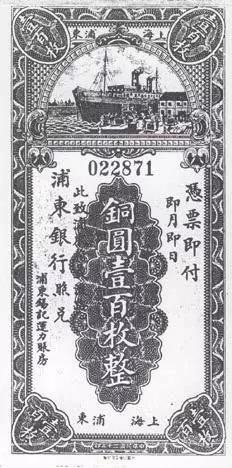 壹百枚
壹百枚
上海 浦東
022871
憑票即付
即月即日
銅圓壹百枚整
此致
浦東銀行照兑
浦東錫記運力賬房
上海 浦東
壹百枚
壹百枚